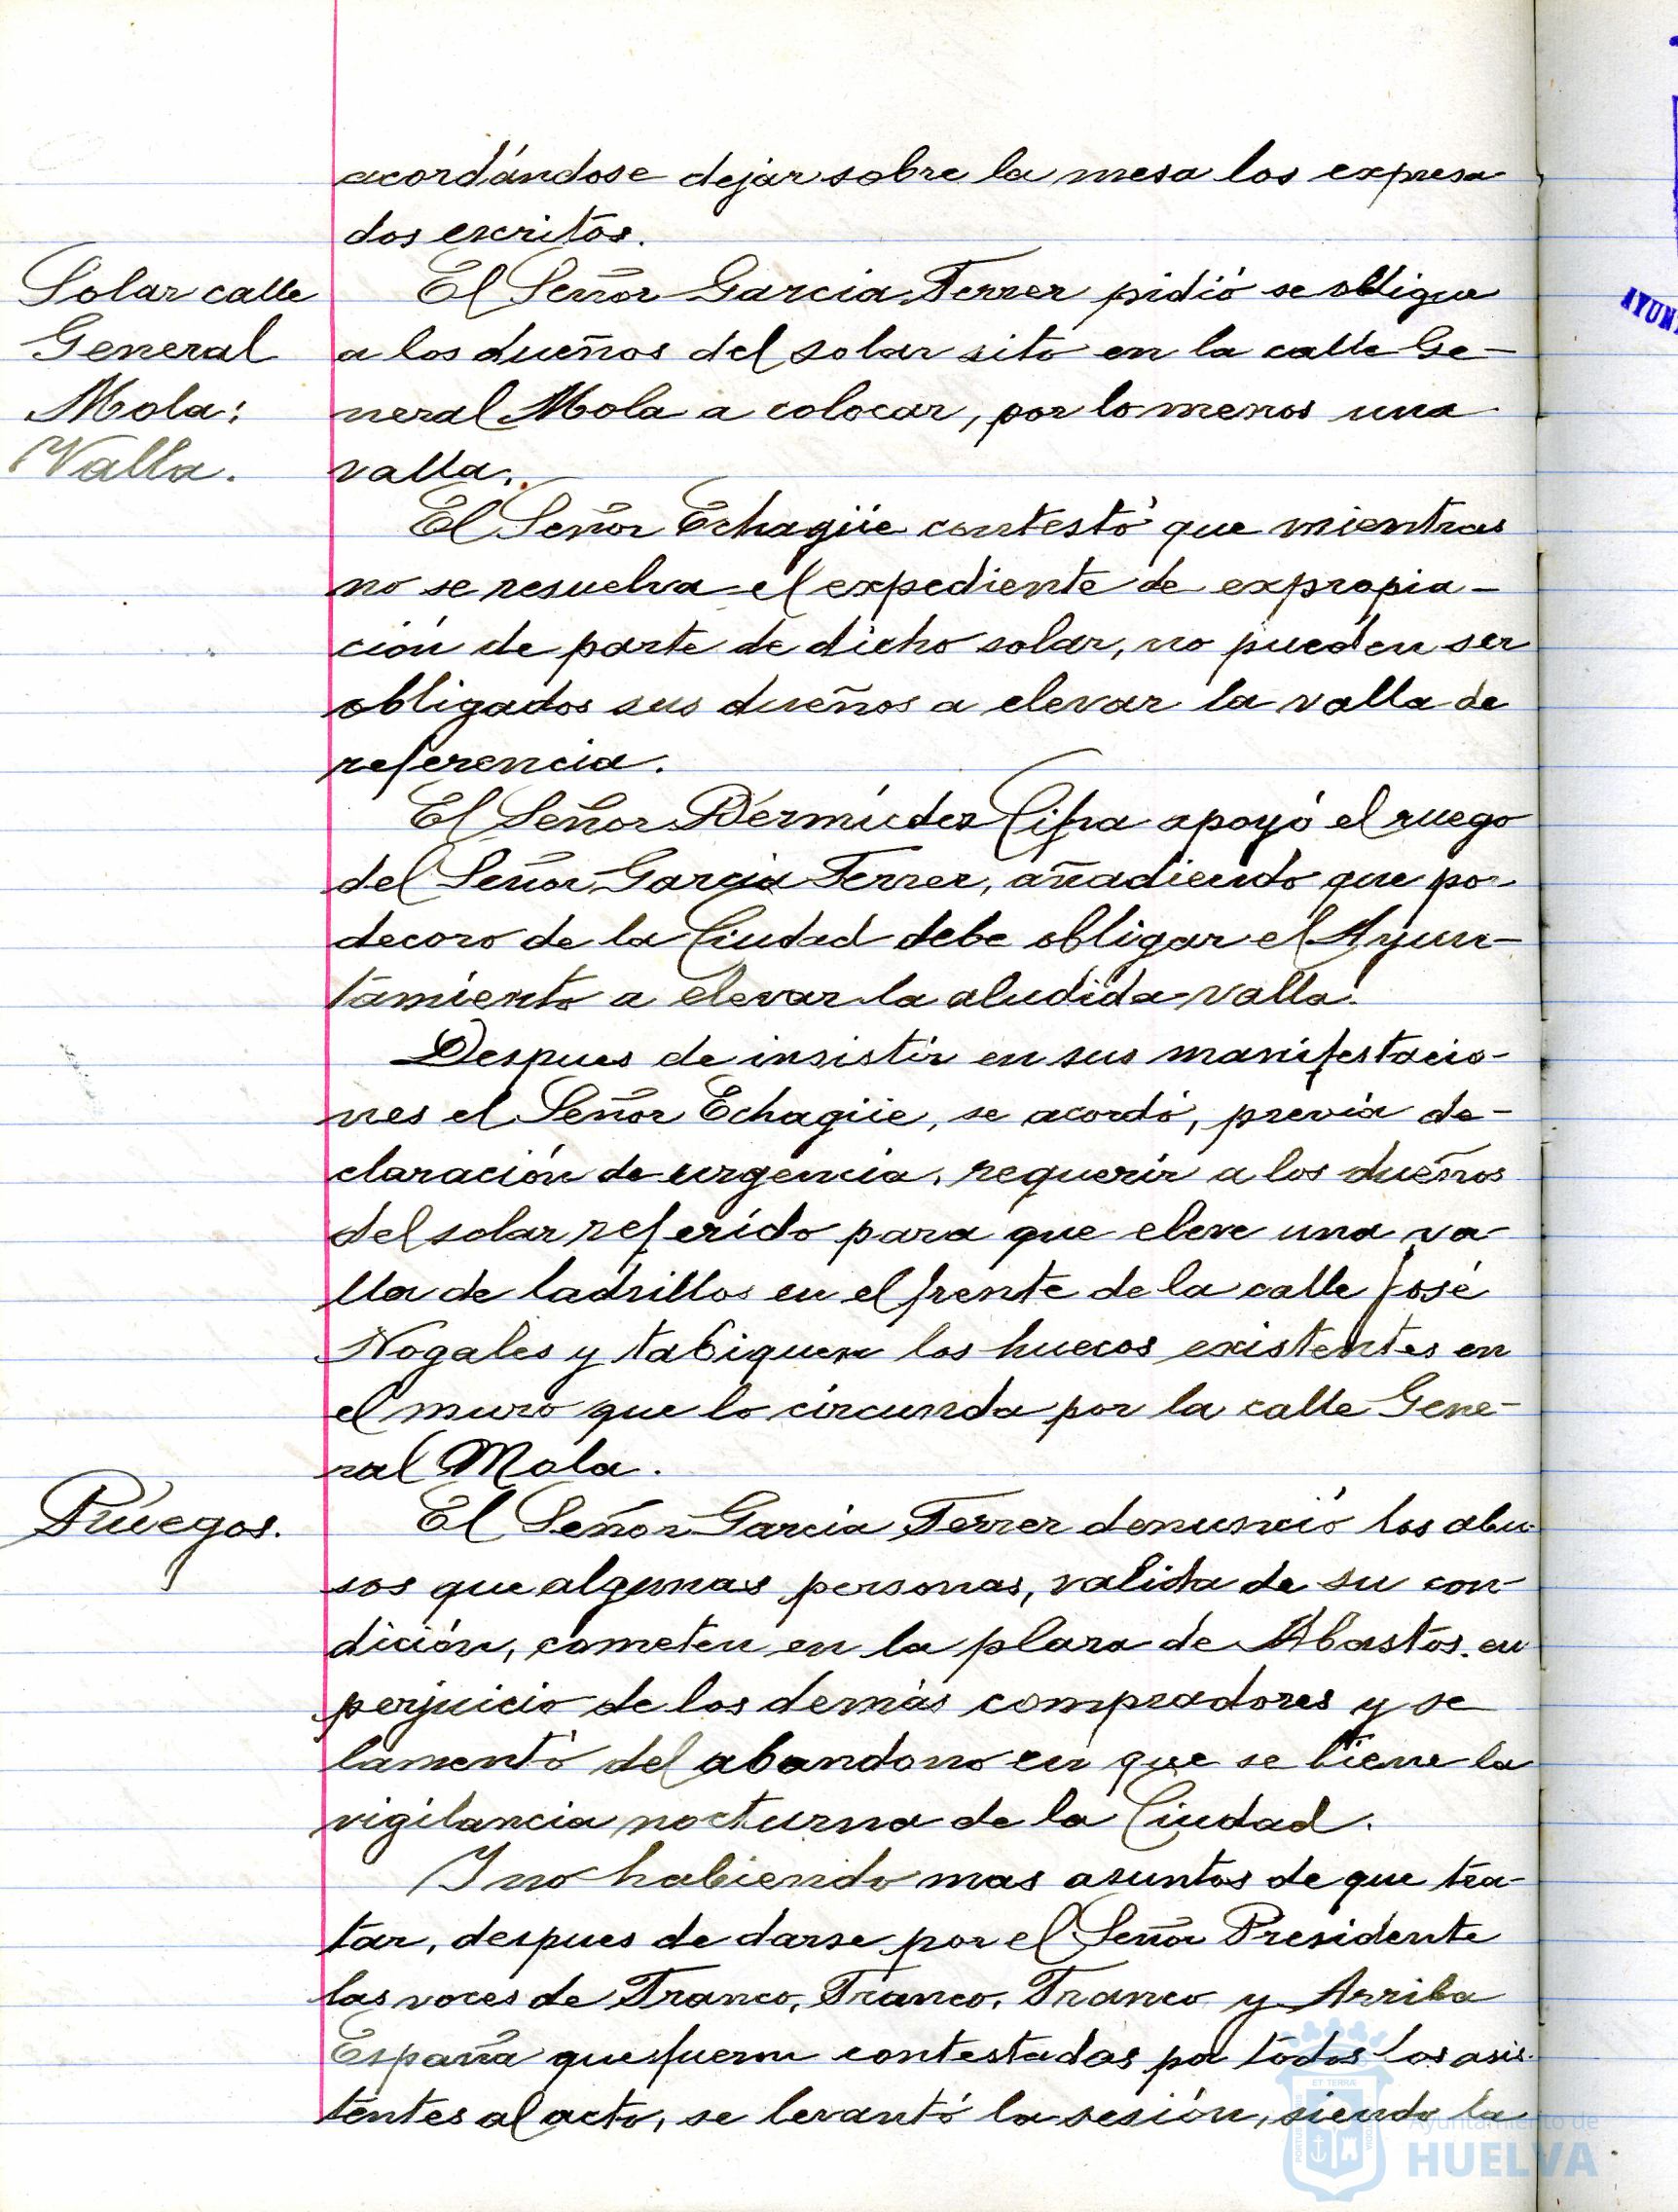 acordándose dejar sobre la mesa los expresa
dos escritos.
Solar calle
General
Mola:
Valla.
El Señor Garcia Ferrer pidió se obligue
a los dueños del solar sito en la calle Ge-
neral Mola a colocar, por lo menos una
valla.
El Señor Echagüe contestó que mientras
no se resuelva el expediente de expropia-
ción de parte de dicho solar, no pueden ser
obligados sus dueños a elevar la valla de
referencia.
El Señor Bermúdez Cifra apoyó el ruego
del Señor Garcia Ferrer, añadiendo que por
decoro de la Ciudad debe obligar el Ayun-
tamiento a elevar la aludida valla.
Despues de insistir en sus manifestacio-
nes el Señor Echagüe, se acordó, previa de-
claración de urgencia, requerir a los dueños
del solar referido para que eleve una va
lla de ladrillos en el frente de la calle José
Nogales y tabiquen los huecos existentes en
el muro que lo circunda por la calle Gene-
ral Mola.
Ruegos.
El Señor Garcia Ferrer denunció los abu-
sos que algunas personas, valida de su con-
dición, cometen en la plaza de Abastos. en
perjuicio de los demás compradores y se
lamentó del abandono en que se tiene la
vigilancia nocturna de la Ciudad.
Y no habiendo mas asuntos de que tra-
tar, despues de darse por el Señor Presidente
las voces de Franco, Franco, Franco y Arriba
España que fueron contestadas por todos los asis-
tentes al acto, se levantó la sesión, siendo la
AYUN
Ayuntamiento de
HUELVA